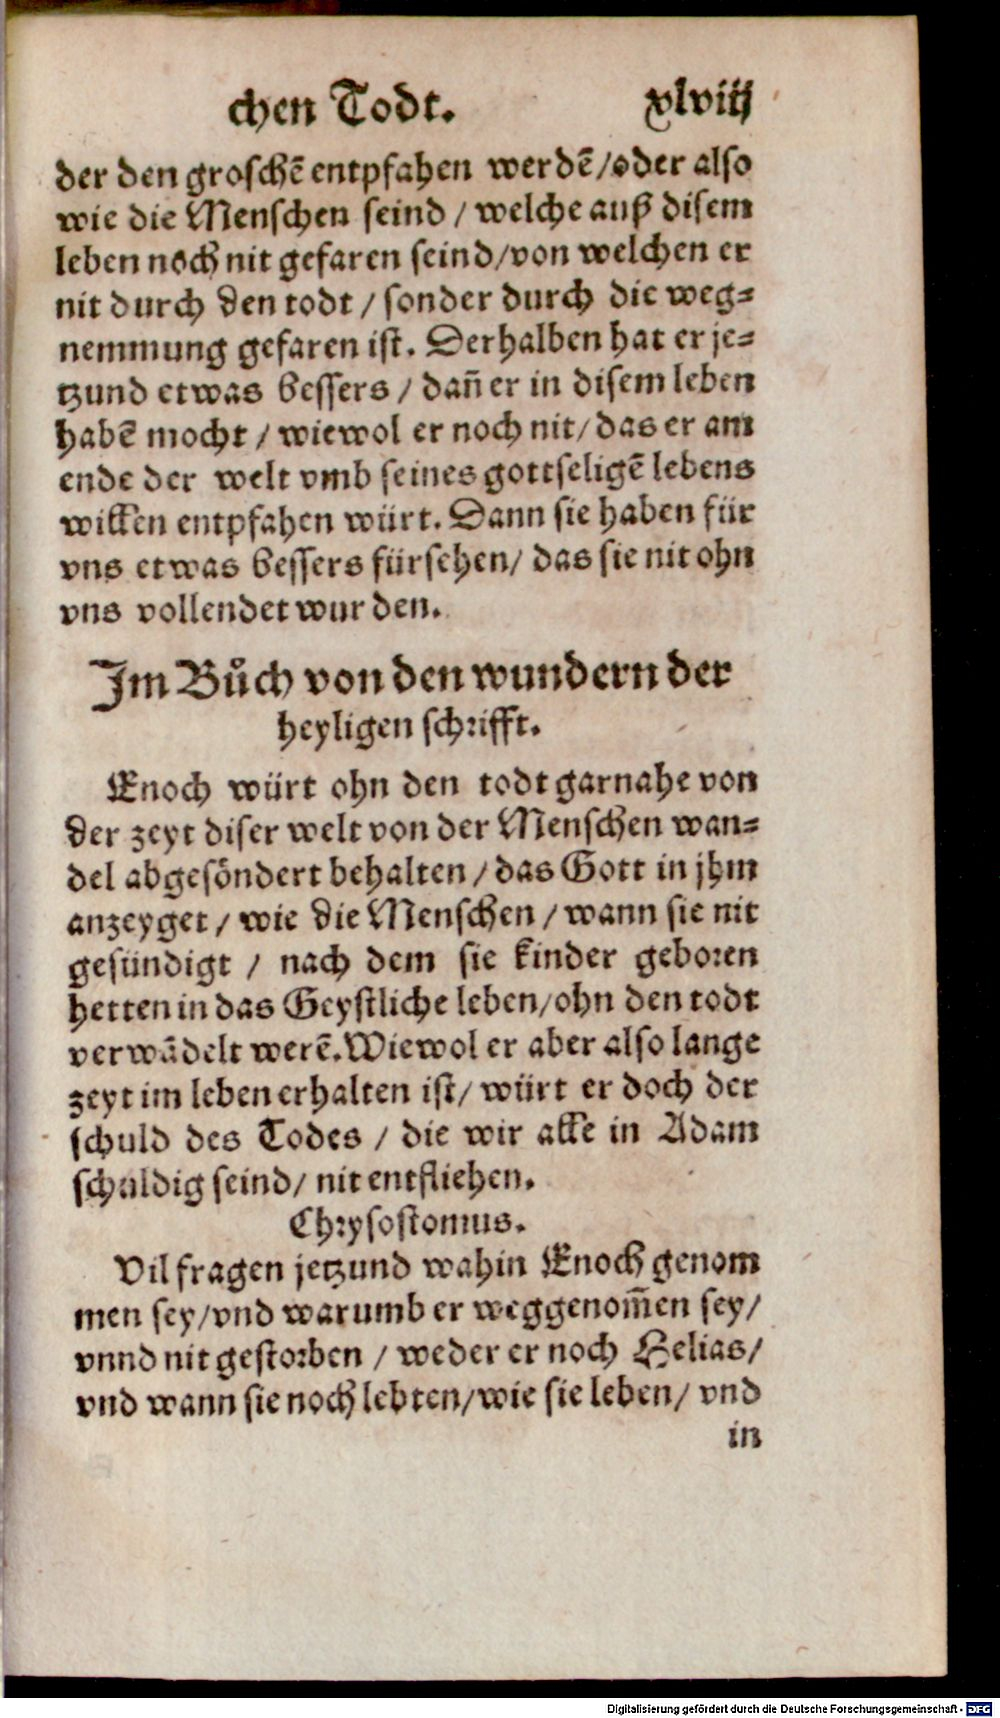 chen Todt. xlviij
der den groschē entpfahen werdē/oder also
wie die Menschen seind / welche auß disem
leben noch nit gefaren seind/von welchen er
nit durch den todt / sonder durch die weg⸗
nemmung gefaren ist. Derhalben hat er je⸗
tzund etwas bessers / dañ er in disem leben
habē mocht / wiewol er noch nit/ das er am
ende der welt vmb seines gottseligē lebens
willen entpfahen würt. Dann sie haben für
vns etwas bessers fürsehen/ das sie nit ohn
vns vollendet wurden.
Im Bůch von den wundern der
heyligen schrifft.
Enoch würt ohn den todt garnahe von
der zeyt diser welt von der Menschen wan⸗
del abgesöndert behalten / das Gott in jhm
anzeyget / wie die Menschen / wann sie nit
gesündigt / nach dem sie kinder geboren
hetten in das Geystliche leben/ohn den todt
verwādelt werē. Wiewol er aber also lange
zeyt im leben erhalten ist/ würt er doch der
schuld des Todes / die wir alle in Adam
schuldig seind/ nit entfliehen.
Chrysostomus.
Vil fragen jetzund wahin Enoch genom
men sey/vnd warumb er weggenom̃en sey/
vnnd nit gestorben / weder er noch Helias/
vnd wann sie noch lebten/wie sie leben/ vnd
in
Digitalisierung gefördert durch die Deutsche Forschungsgemeinschaft - DFG